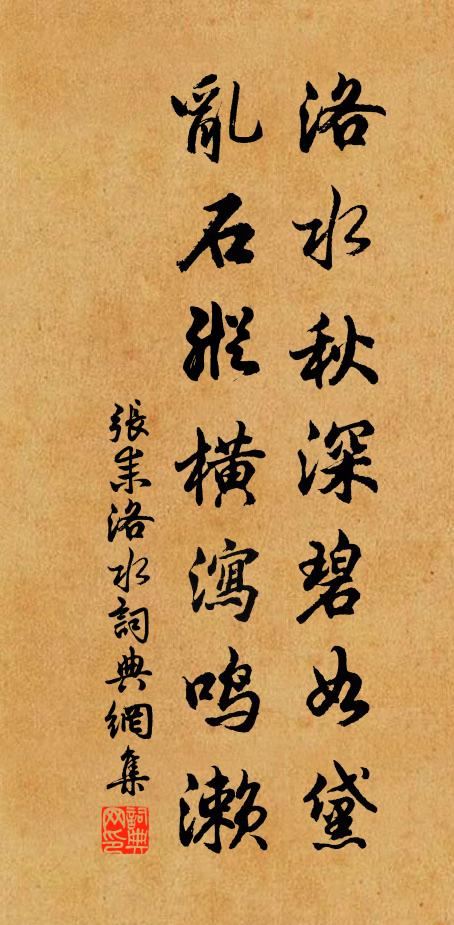 洛水秋深碧如黛
亂石縱橫瀉鳴瀨
張耒洛水詞典網集
詞典网印